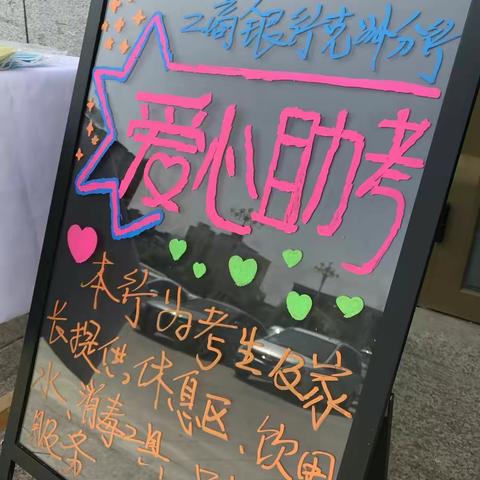 工商银行克洲分行
爱心助考
本行为考生及家
长提供休息区、饮用
水、消毒工具、
服务